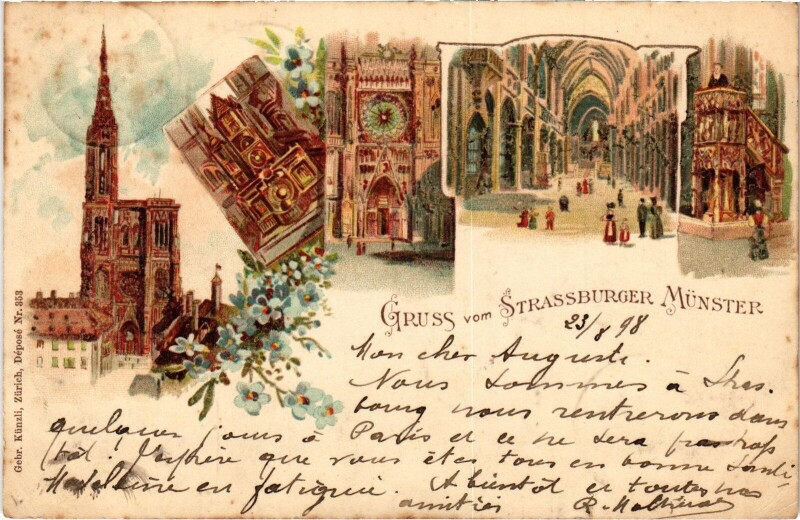 Gruss vom Strassburger Münster
23/8 98
Mon cher Auguste.
Nous sommes à Stras-
bourg nous rentrerons dans
quelques jours à Paris et ce ne sera pas trop
tôt. J'espère que vous êtes tous en bonne santé
Madeleine en A bientôt et toutes nos
amitiés
Gebr. Künzli, Zürich, Déposé Nr. 353